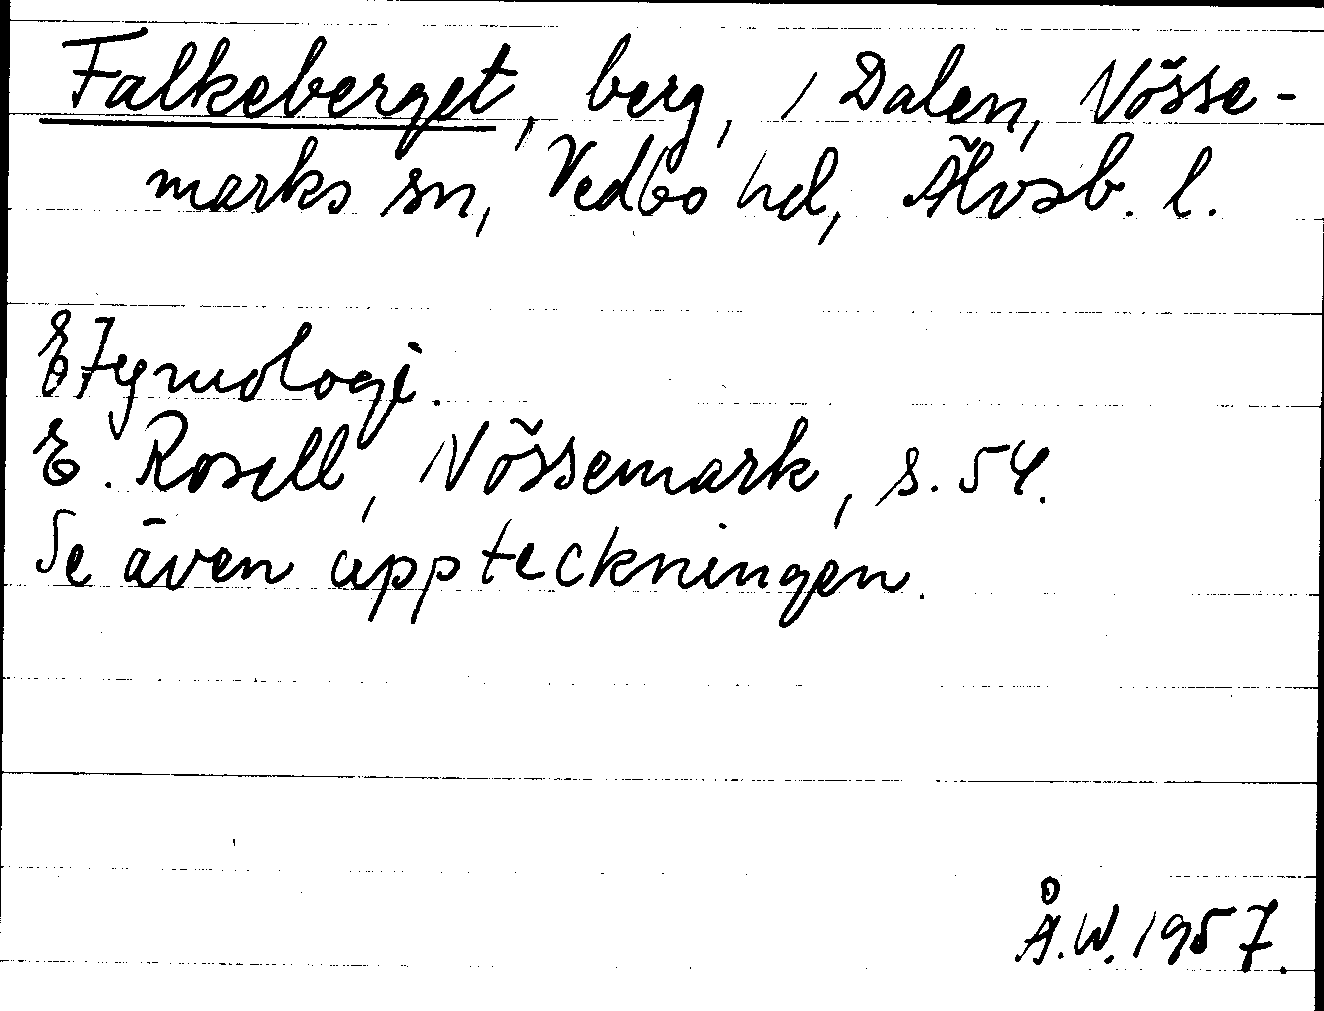 Falkeberget, berg, 1 Dalen, Nösse-
marks sn, Vedbo hd, Älvsb. l.
Etymologi.
E. Rosell, Nössemark, s. 54.
Se även uppteckningen.
Å.W. 1957.